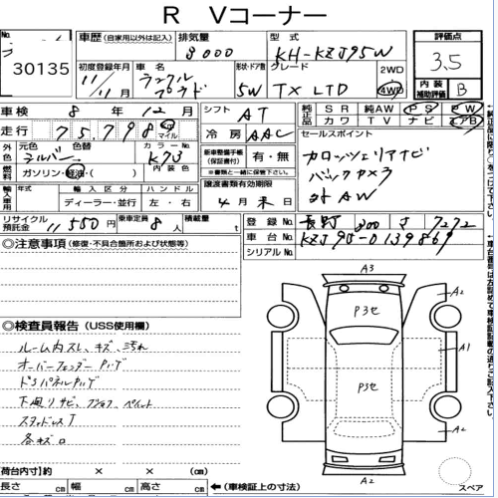 R Vコーナー
No. 30135
車歴 (自家用以外は記入)
排気量 3000
型式 KH-KZJ95W
評価点 3.5
初度登録年月 11/11月
車名 ランクル プラド
形状・ドア数 5W
グレード TX LTD
2WD
4WD
内装補助評価 B
車検 8年12月
シフト AT
純正品 SR 純AW PS PW
カワ TV ナビ エアB
走行 75,798 km マイル
冷房 AAC
セールスポイント
外色 元色 シルバー 色替
カラーNo. K73
新車整備手帳(保証書付) 有・無
カロッツェリアナビ
燃料 ガソリン・軽油・( )
内装色
バックカメラ
輸入車用 年式 輸入区分 ハンドル
ディーラー・並行 左・右
譲渡書類有効期限
4月末日
社外AW
リサイクル預託金 11550円
乗車定員 8人
積載量 t
登録No. 長野 300 7272
車台No. KZJ95-0139869
シリアルNo.
◎注意事項 (修復・不具合箇所および状態等)
◎検査員報告 (USS使用欄)
ルーム内スレ、キズ、汚れ
オーバーフェンダー
下廻りサビ、 ペイント
スタッドレスT
各キズ
荷台内寸]約 × × (cm)
長さ cm 幅 cm 高さ cm
←(車検証上の寸法)
A3
P3セ
A2
A1
P3セ
A2
A2
A2
スペア